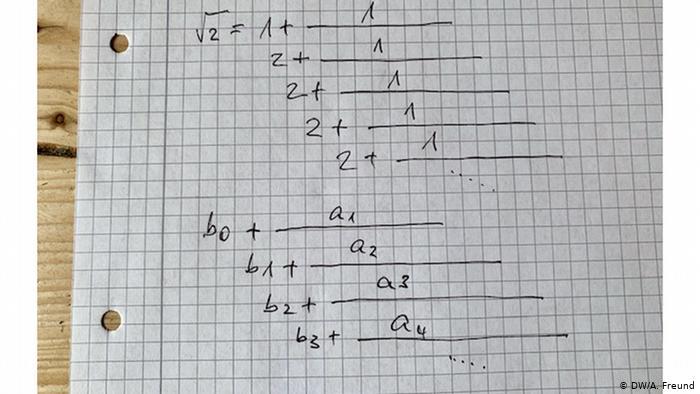 √2 = 1 + 1
2 + 1
2 + 1
2 + 1
2 + 1
.....
b0 + a1
b1 + a2
b2 + a3
b3 + a4
....
© DW/A. Freund